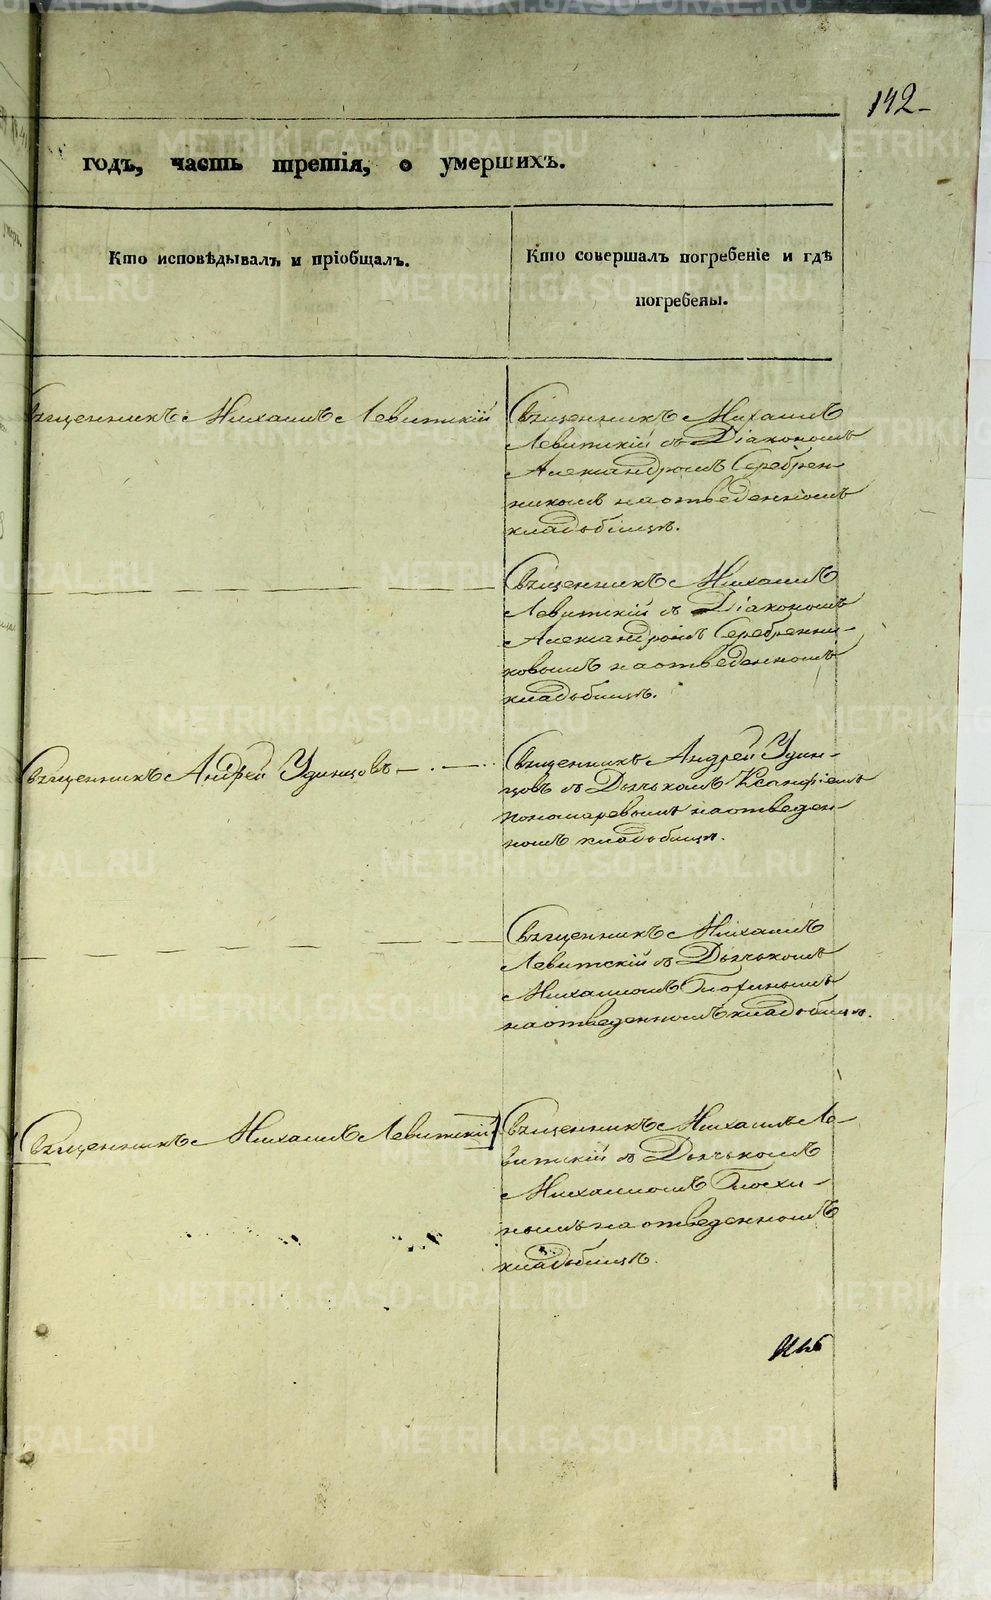 142
годъ, часть третія, о умершихъ.
Кто исповѣдывалъ и пріобщалъ.
Кто совершалъ погребеніе и гдѣ
погребены.
Священникъ Михаилъ Левитскій
Священникъ Михаилъ
Левитскій съ Діакономъ
Александромъ Серебрен-
никомъ на отведенномъ
кладбищѣ.
Священникъ Михаилъ
Левитскій съ Діакономъ
Александромъ Серебренни-
ковымъ на отведенномъ
кладбищѣ.
Священникъ Андрей Удинцовъ
Священникъ Андрей Удин-
цовъ съ Дьячкомъ
Пономаревымъ на отведен-
номъ кладбищѣ.
Священникъ Михаилъ
Левитскій съ Дьячкомъ
Михаиломъ
на отведенномъ кладбищѣ.
Священникъ Михаилъ Левитскій
Священникъ Михаилъ Ле-
витскій съ Дьячкомъ
Михаиломъ
на отведенномъ
кладбищѣ.
METRIKI.GASO-URAL.RU